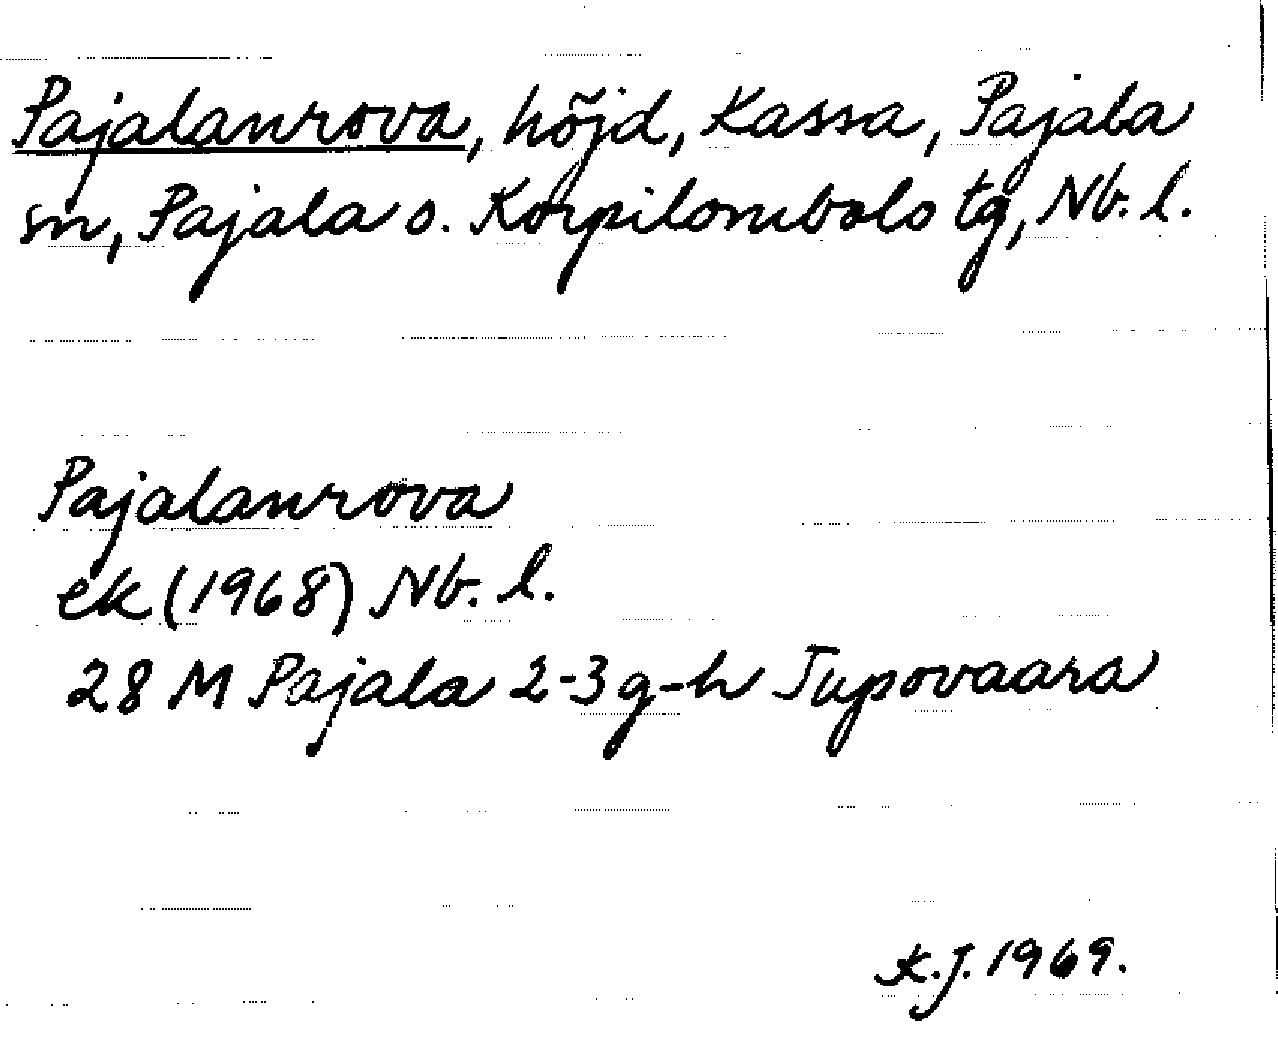 Pajalanrova, höjd, Kassa, Pajala
sn, Pajala o. Korpilombolo tg, Nb. l.
Pajalanrova
ek (1968) Nb. l.
28 M Pajala 2-3 g-h Jupovaara
K.J. 1969.